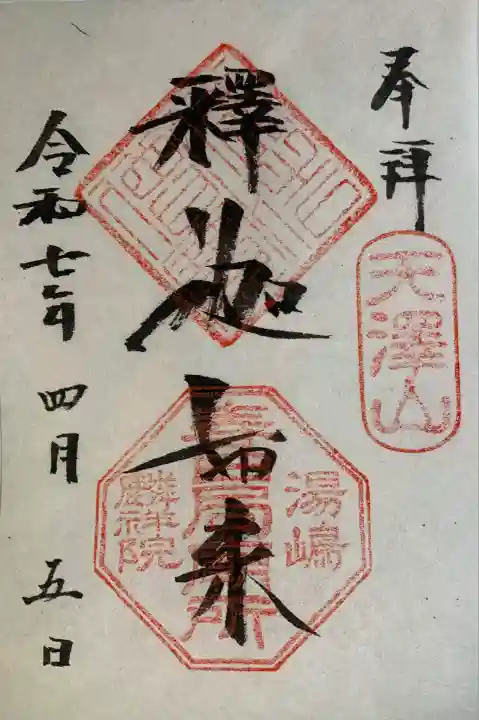 奉拝
天澤山
釋迦如来
湯嶋
春日局廟所
麟祥院
令和七年
四月
五日